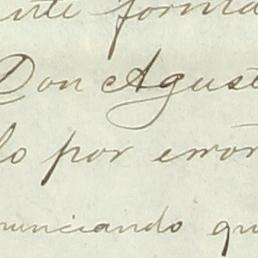 nte forma
Don Agust
lo por error
nunciando qu